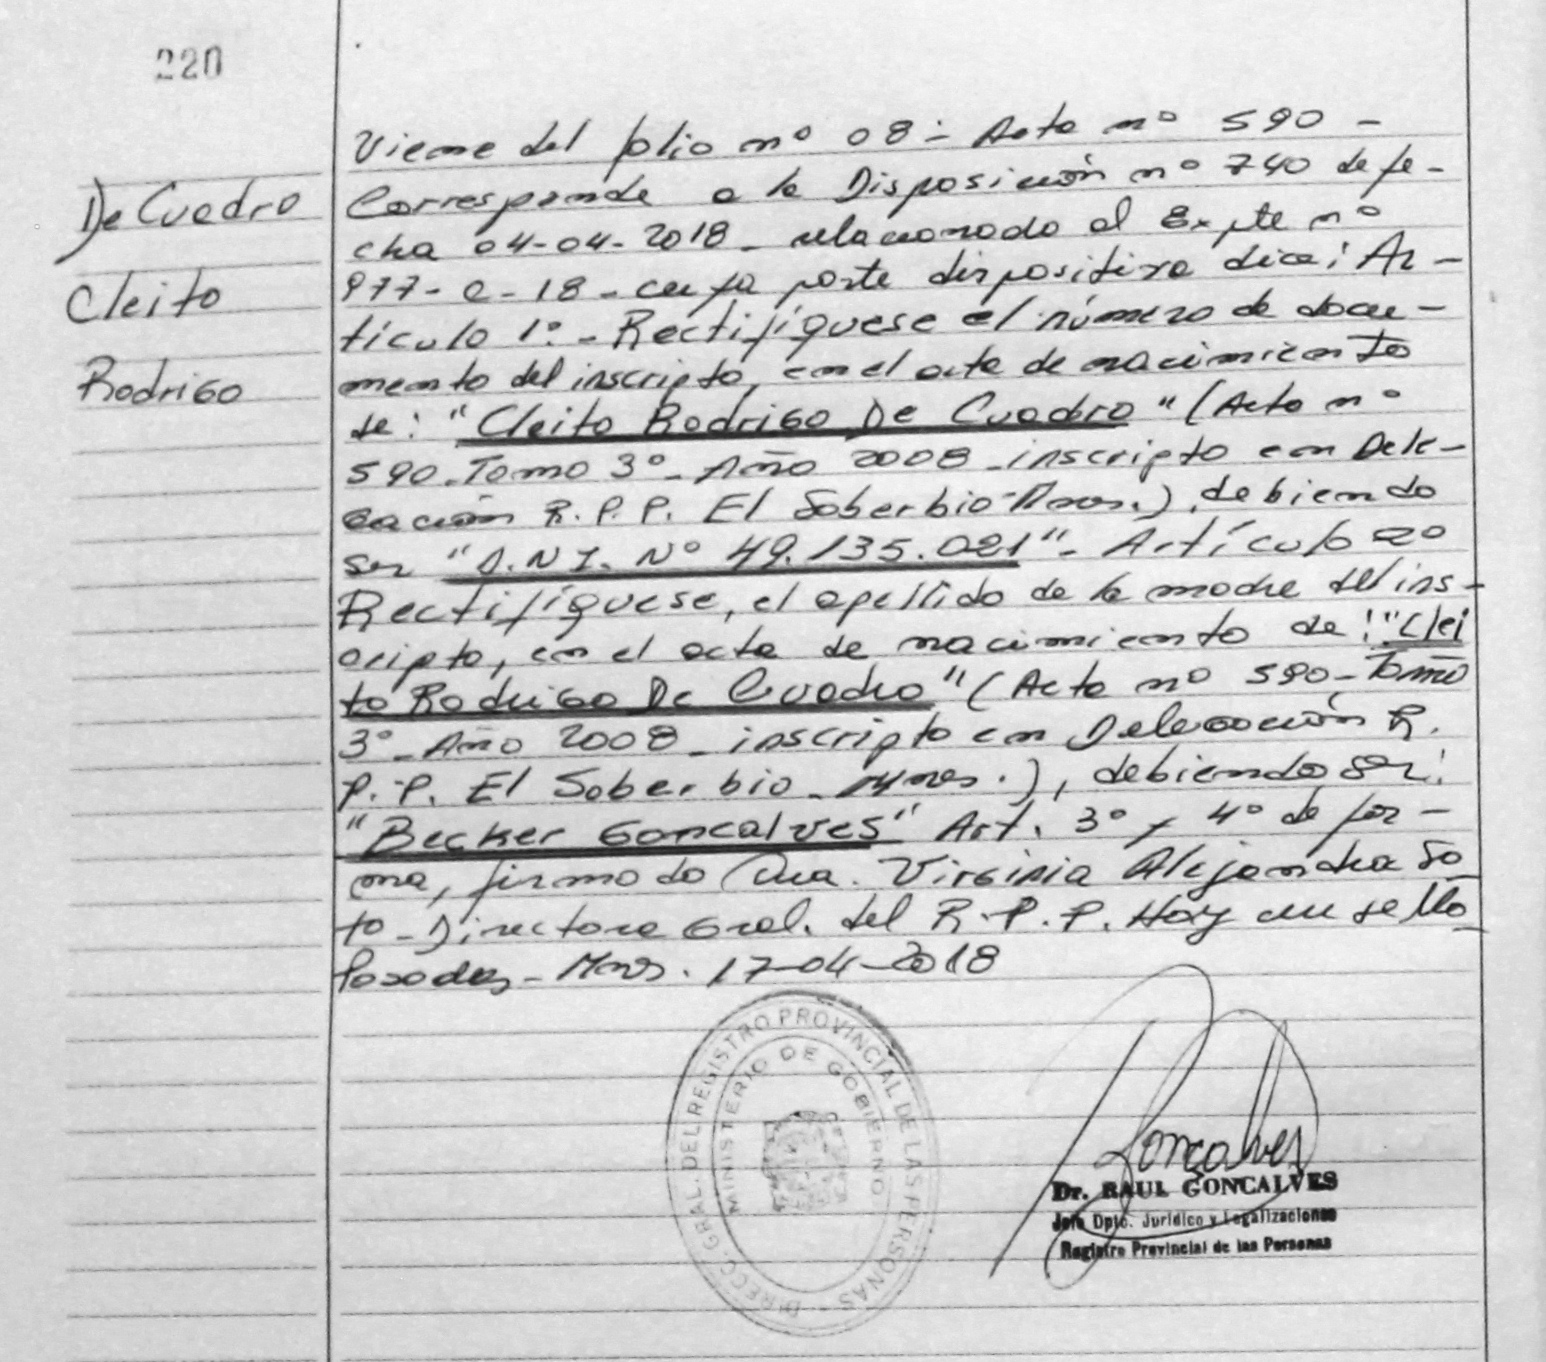 220
De Cuadro
Cleito
Rodrigo
Viene del folio nº 08 - Acta nº 590 -
Corresponde a la Disposición nº 740 de fe-
cha 04-04-2018 - relacionado al Expte nº
977-C-18 - cuya parte dispositiva dice: Ar-
tículo 1º - Rectifíquese el número de docu-
mento del inscripto, en el acta de nacimiento
de: "Cleito Rodrigo De Cuadro" (Acta nº
590 - Tomo 3º - Año 2008 - inscripto en Dele-
gación R.P.P. El Soberbio - Mnes.), debiendo
ser "D.N.I. Nº 49.135.021" - Artículo 2º
Rectifíquese, el apellido de la madre del ins-
cripto, en el acta de nacimiento de: "Clei
to Rodrigo De Cuadro" (Acta nº 590 - Tomo
3º - Año 2008 - inscripto en Delegación R.
P.P. El Soberbio - Mnes.), debiendo ser:
"Becker Goncalves" Art. 3º y 4º de for-
ma, firmado Dra. Virginia Alejandra So
to - Directora Gral. del R.P.P. Hoy
Posadas - Mnes. 17-04-2018
DIRECC. GRAL. DEL REGISTRO PROVINCIAL DE LAS PERSONAS
MINISTERIO DE GOBIERNO
Goncalves
Dr. RAUL GONCALVES
Jefe Dpto. Jurídico y Legalizaciones
Registro Provincial de las Personas